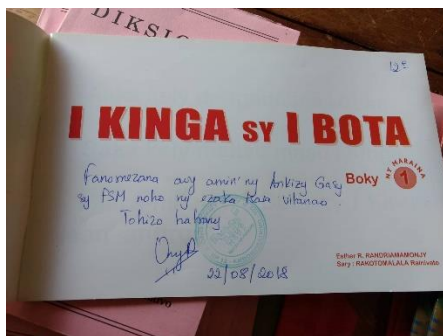 DIKSI
12 €
I KINGA SY I BOTA
Fanomezana avy amin'ny Ankizy Gasy
sy PSM noho ny ezaka tsara vitanao.
Tohizo hatrany
Boky 1
NY MARAINA
22/08/2018
Esther R. RANDRIAMAMONJY
Sary : RAKOTOMALALA Ramivato